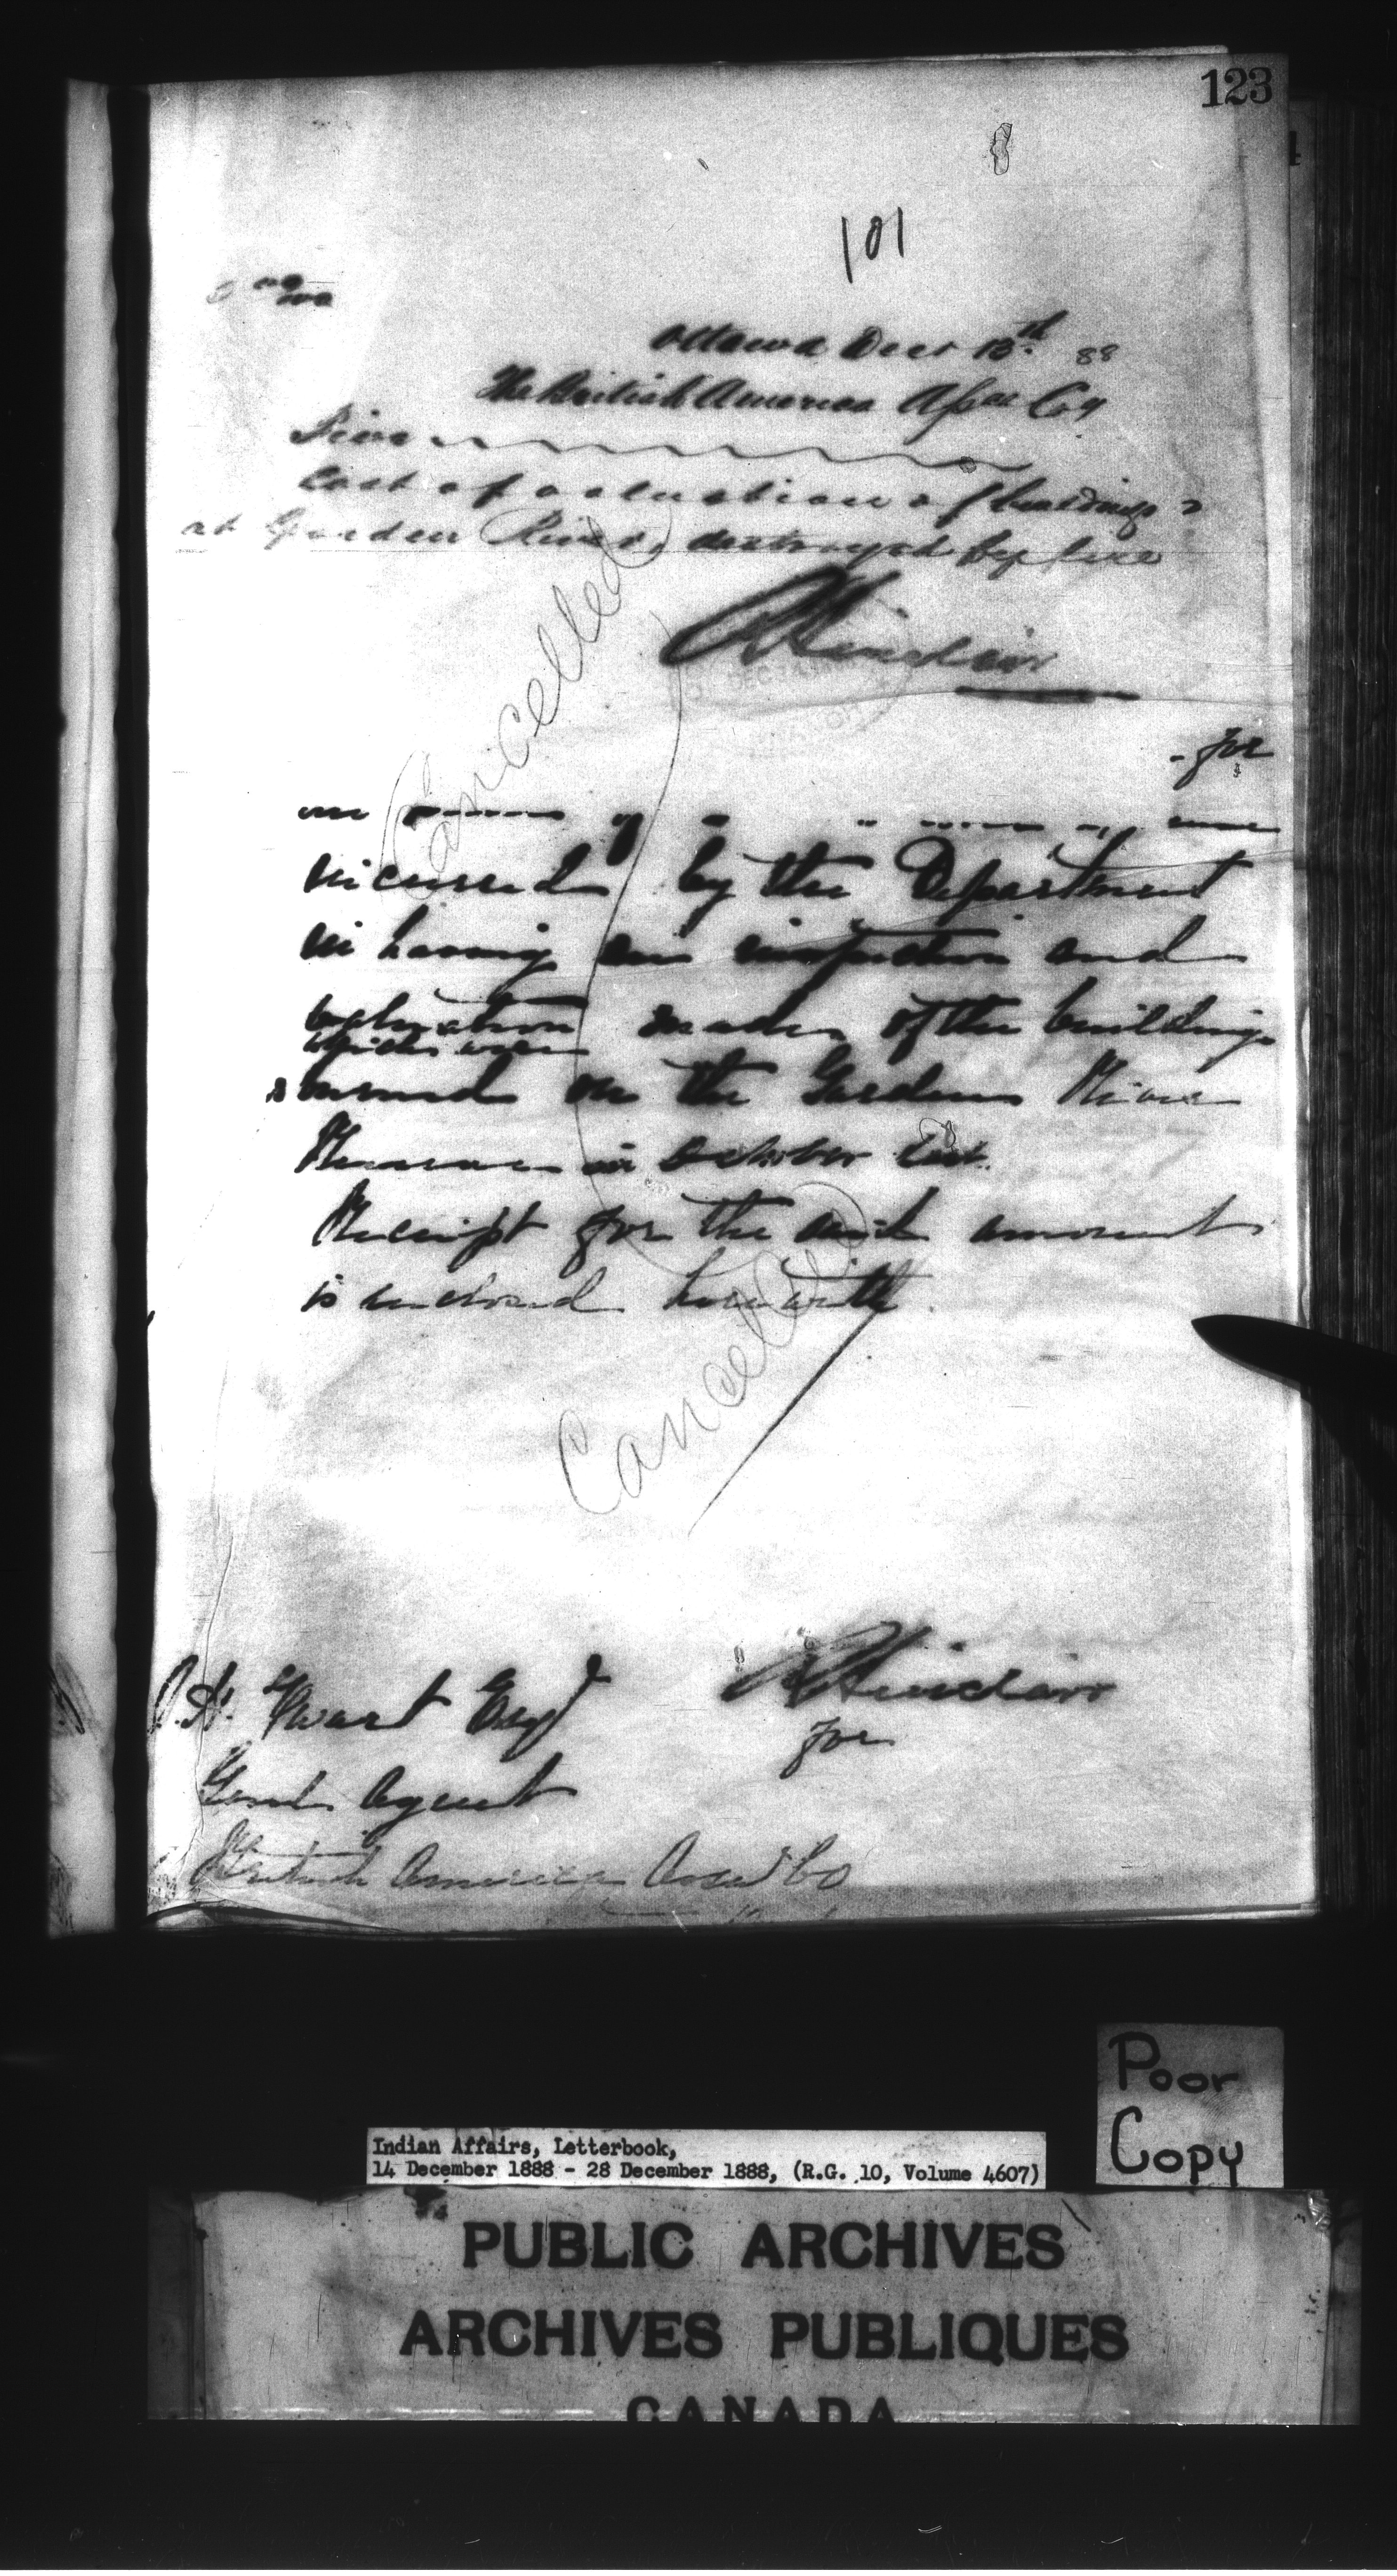 123
101
Ottawa Decr 13th 88
The British America Assce Coy
Five
Cost of valuation of buildings
at Garden River, destroyed by fire
R Sinclair
for
incurred by the Department
in having an inspection and
valuation made of the buildings
which were
burned on the Garden River
Reserve in October last.
Receipt for the said amount
is enclosed herewith.
Cancelled
Cancelled
J. H. Ewart Esqr
R Sinclair
for
Genl. Agent
British America Assce Co
Poor
Copy
Indian Affairs, Letterbook,
14 December 1888 - 28 December 1888, (R.G. 10, Volume 4607)
PUBLIC ARCHIVES
ARCHIVES PUBLIQUES
CANADA